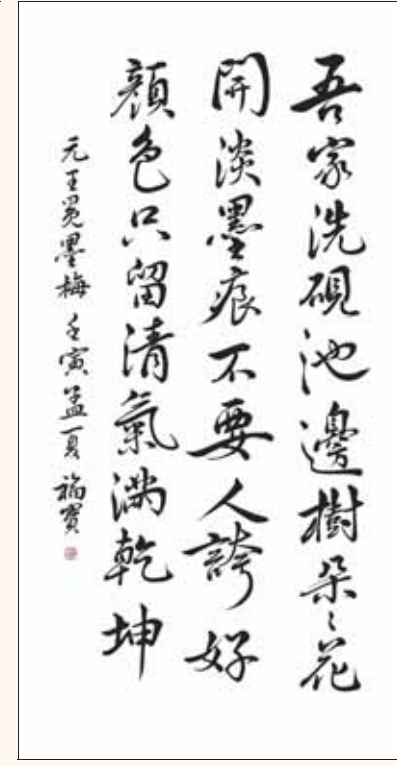 吾家洗硯池邊樹朶〻花
開淡墨痕不要人誇好
顏色只留清氣滿乾坤
元王冕墨梅 壬寅孟夏 福寶